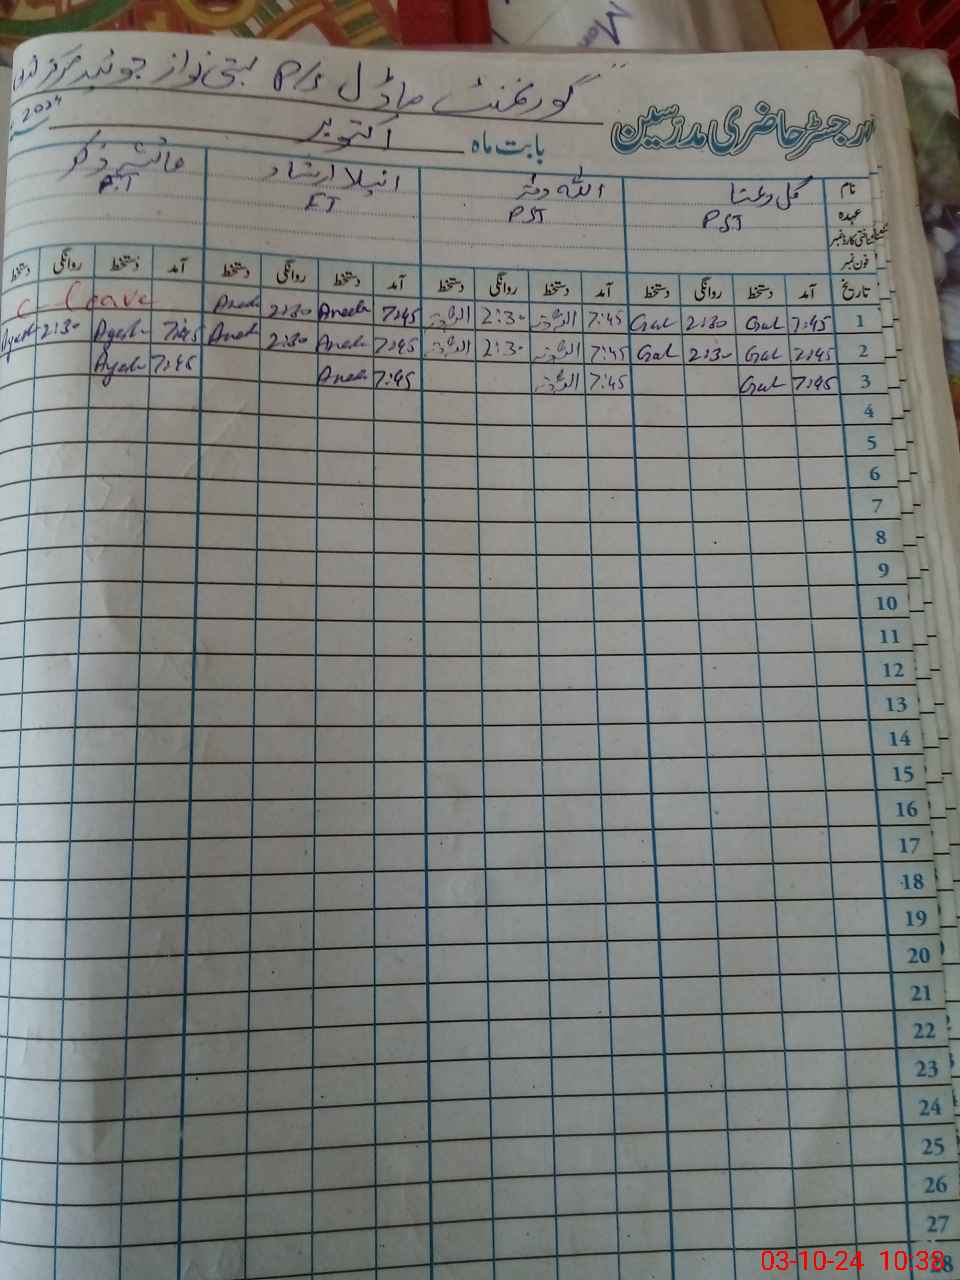 گورنمنٹ ماڈل P/S بستی نواز جوئیہ
رجسٹر حاضری مدرسین بابت ماہ اکتوبر 2024
نام گل رعنا اللہ دتہ انیلا ارشاد
عہدہ PST PST ET
فون نمبر
تاریخ آمد دستخط روانگی دستخط آمد دستخط روانگی دستخط آمد دستخط روانگی دستخط آمد دستخط روانگی دستخط
1 7:45 Gul 2:30 Gul 7:45 اللہ دتہ 2:30 اللہ دتہ 7:45 Aneela 2:30 Aneela C Leave
2 7:45 Gul 2:30 Gul 7:45 اللہ دتہ 2:30 اللہ دتہ 7:45 Aneela 2:30 Aneela 7:45 Ayesh 2:30 Ayesh
3 7:45 Gul 7:45 اللہ دتہ 7:45 Aneela 7:45 Ayesh
4
5
6
7
8
9
10
11
12
13
14
15
16
17
18
19
20
21
22
23
24
25
26
27
28
03-10-24 10:38